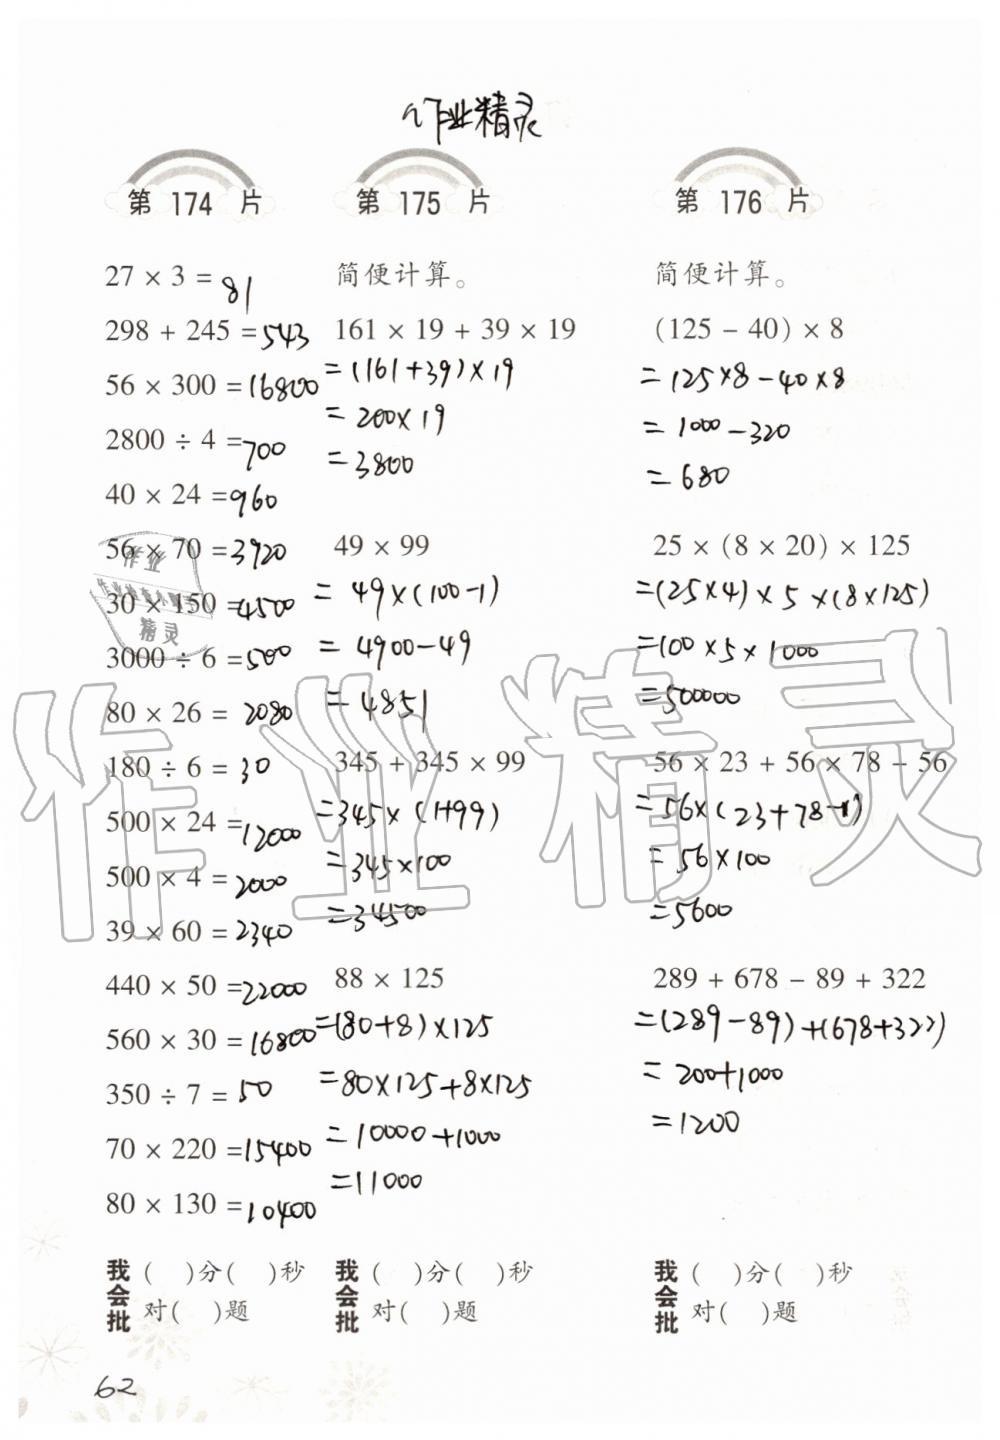 作业精灵
第 174 片
27 × 3 = 81
298 + 245 = 543
56 × 300 = 16800
2800 ÷ 4 = 700
40 × 24 = 960
56 × 70 = 3920
30 × 150 = 4500
3000 ÷ 6 = 500
80 × 26 = 2080
180 ÷ 6 = 30
500 × 24 = 12000
500 × 4 = 2000
39 × 60 = 2340
440 × 50 = 22000
560 × 30 = 16800
350 ÷ 7 = 50
70 × 220 = 15400
80 × 130 = 10400
我会批
( )分( )秒
对( )题
第 175 片
简便计算。
161 × 19 + 39 × 19
= (161+39)×19
= 200×19
= 3800
49 × 99
= 49×(100-1)
= 4900-49
= 4851
345 + 345 × 99
=345×(1+99)
=345×100
=34500
88 × 125
=(80+8)×125
=80×125+8×125
=10000+1000
=11000
我会批
( )分( )秒
对( )题
第 176 片
简便计算。
(125 - 40) × 8
= 125×8-40×8
= 1000-320
= 680
25 × (8 × 20) × 125
=(25×4)×5×(8×125)
=100×5×1000
=500000
56 × 23 + 56 × 78 - 56
=56×(23+78-1)
=56×100
=5600
289 + 678 - 89 + 322
=(289-89)+(678+322)
= 200+1000
=1200
我会批
( )分( )秒
对( )题
62
作业
精灵
作业精灵